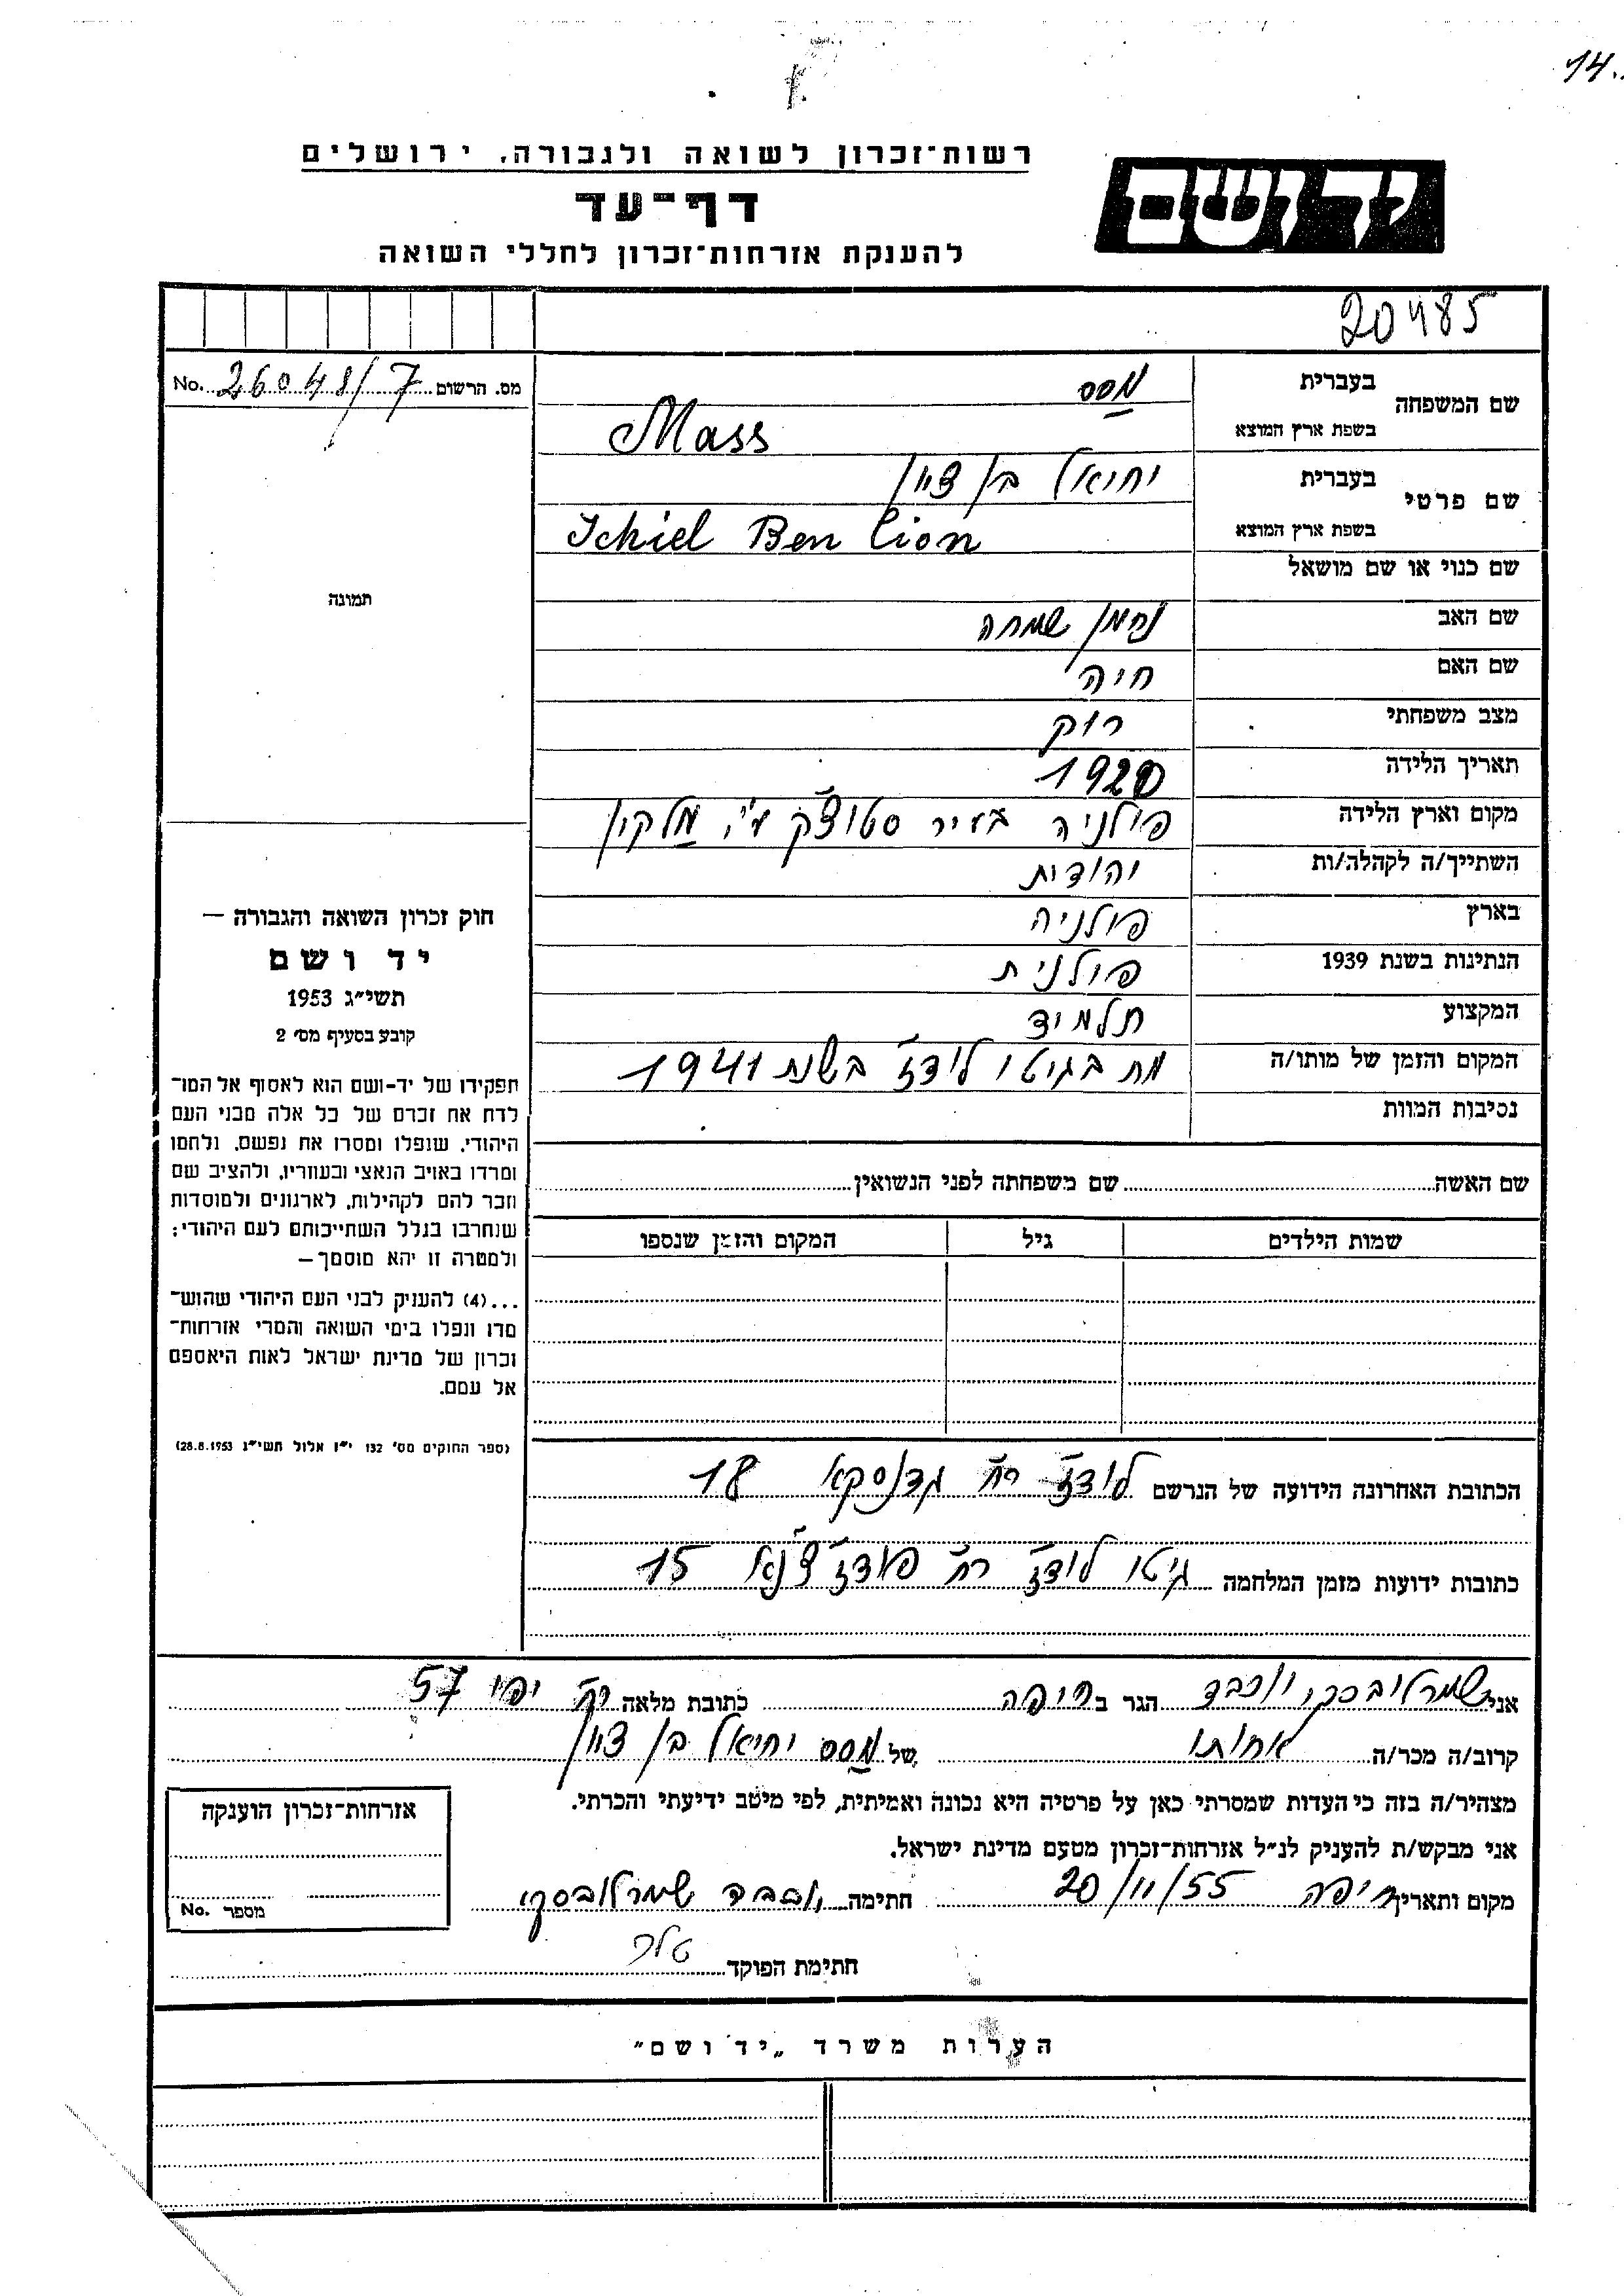 14.
רשות־זכרון לשואה ולגבורה, ירושלים
יד ושם
דף־עד
להענקת אזרחות־זכרון לחללי השואה
20485
מס. הרשום 26048/7 No.
שם המשפחה
בעברית מסס
בשפת ארץ המוצא Mass
שם פרטי
בעברית יחיאל בן ציון
בשפת ארץ המוצא Ichiel Ben Cion
שם כנוי או שם מושאל
שם האב נחמן שמחה
שם האם חיה
מצב משפחתי רוק
תאריך הלידה 1920
מקום וארץ הלידה פולניה בעיר סטוצק ע״י מלקין
השתייך/ה לקהלה/ות יהודית
בארץ פולניה
הנתינות בשנת 1939 פולנית
המקצוע תלמיד
המקום והזמן של מותו/ה מת בגיטו לודז׳ בשנת 1941
נסיבות המוות
תמונה
חוק זכרון השואה והגבורה –
יד ושם
תשי״ג 1953
קובע בסעיף מס׳ 2
תפקידו של יד-ושם הוא לאסוף אל המו־
לדת את זכרם של כל אלה מבני העם
היהודי, שנפלו ומסרו את נפשם, נלחמו
ומרדו באויב הנאצי ובעוזריו, ולהציב שם
וזכר להם לקהילות, לארגונים ולמוסדות
שנחרבו בגלל השתייכותם לעם היהודי;
ולמטרה זו יהא מוסמך –
...(4) להעניק לבני העם היהודי שהוש־
מדו ונפלו בימי השואה והמרי אזרחות־
זכרון של מדינת ישראל לאות היאספם
אל עמם.
(ספר החוקים מס׳ 132 י״ז אלול תשי״ג 28.8.1953)
שם האשה שם משפחתה לפני הנשואין
שמות הילדים גיל המקום והזמן שנספו
הכתובת האחרונה הידועה של הנרשם לודז׳ רח׳ גדנסקא 18
כתובות ידועות מזמן המלחמה גיטו לודז׳ רח׳ 15
אני שמרלובסקי יוכבד הגר ב חיפה כתובת מלאה רח׳ יפו 57
קרוב/ה מכר/ה אחותו של מסס יחיאל בן ציון
מצהיר/ה בזה כי העדות שמסרתי כאן על פרטיה היא נכונה ואמיתית, לפי מיטב ידיעתי והכרתי.
אני מבקש/ת להעניק לנ״ל אזרחות־זכרון מטעם מדינת ישראל.
מקום ותאריך חיפה 20/11/55 חתימה יוכבד שמרלובסקי
חתימת הפוקד
אזרחות־זכרון הוענקה
מספר No.
הערות משרד „יד ושם״